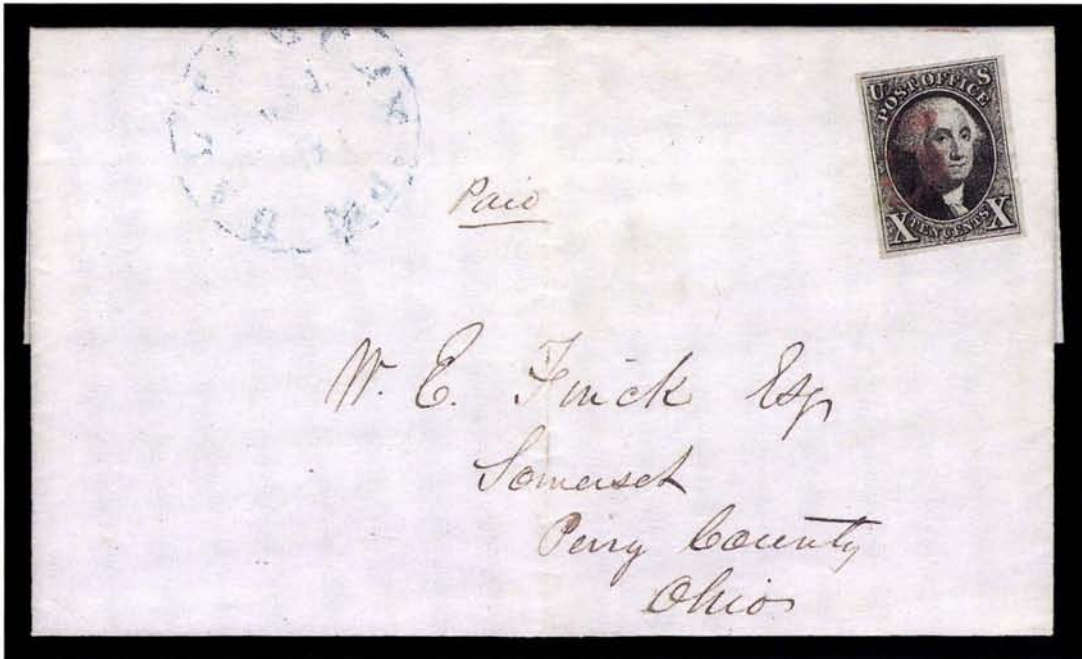 U S
POST OFFICE
X TEN CENTS X
Paid
W. E. Finck Esqr
Somerset
Perry County
Ohio